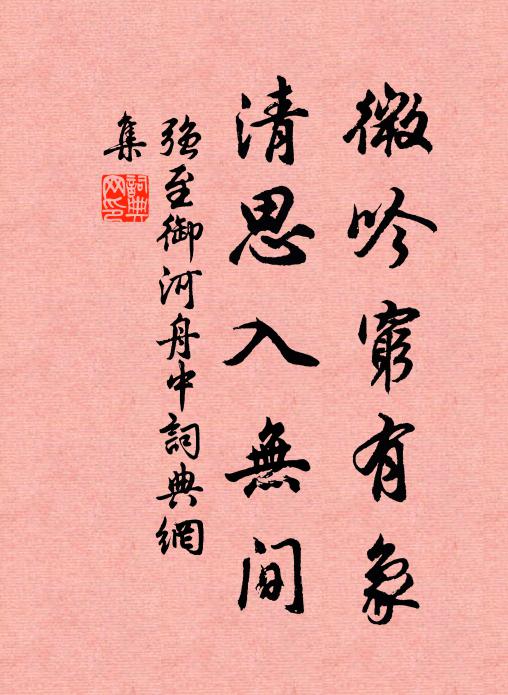 微吟窮有象
清思入無間
強至御河舟中詞典網
集
詞典網印